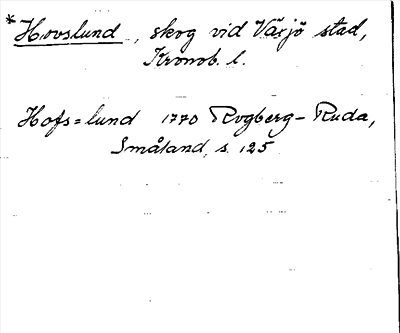 *Hovslund, skog vid Växjö stad,
Kronob. l.
Hofs=lund 1770 Rogberg-Ruda,
Småland, s. 125